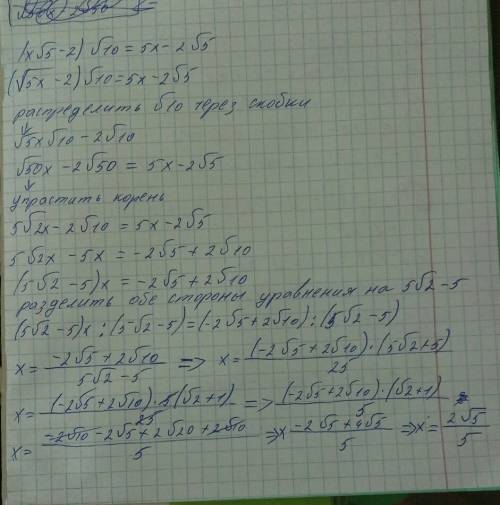 (x√5-2)√10=5x-2√5
(√5x-2)√10=5x-2√5
распределить √10 через скобки
√5x√10-2√10
√50x-2√50=5x-2√5
упрастить корень
5√2x-2√10=5x-2√5
5√2x-5x=-2√5+2√10
(5√2-5)x=-2√5+2√10
разделить обе стороны уравнения на 5√2-5
(5√2-5)x:(5√2-5)=(-2√5+2√10):(5√2-5)
x=(-2√5+2√10)/(5√2-5) => x=((-2√5+2√10)·(5√2+5))/25
x=((-2√5+2√10)·5(√2+1))/25 => ((-2√5+2√10)·(√2+1))/5
x=(-2√10-2√5+2√20+2√10)/5 => x (-2√5+4√5)/5 => x=2√5/5